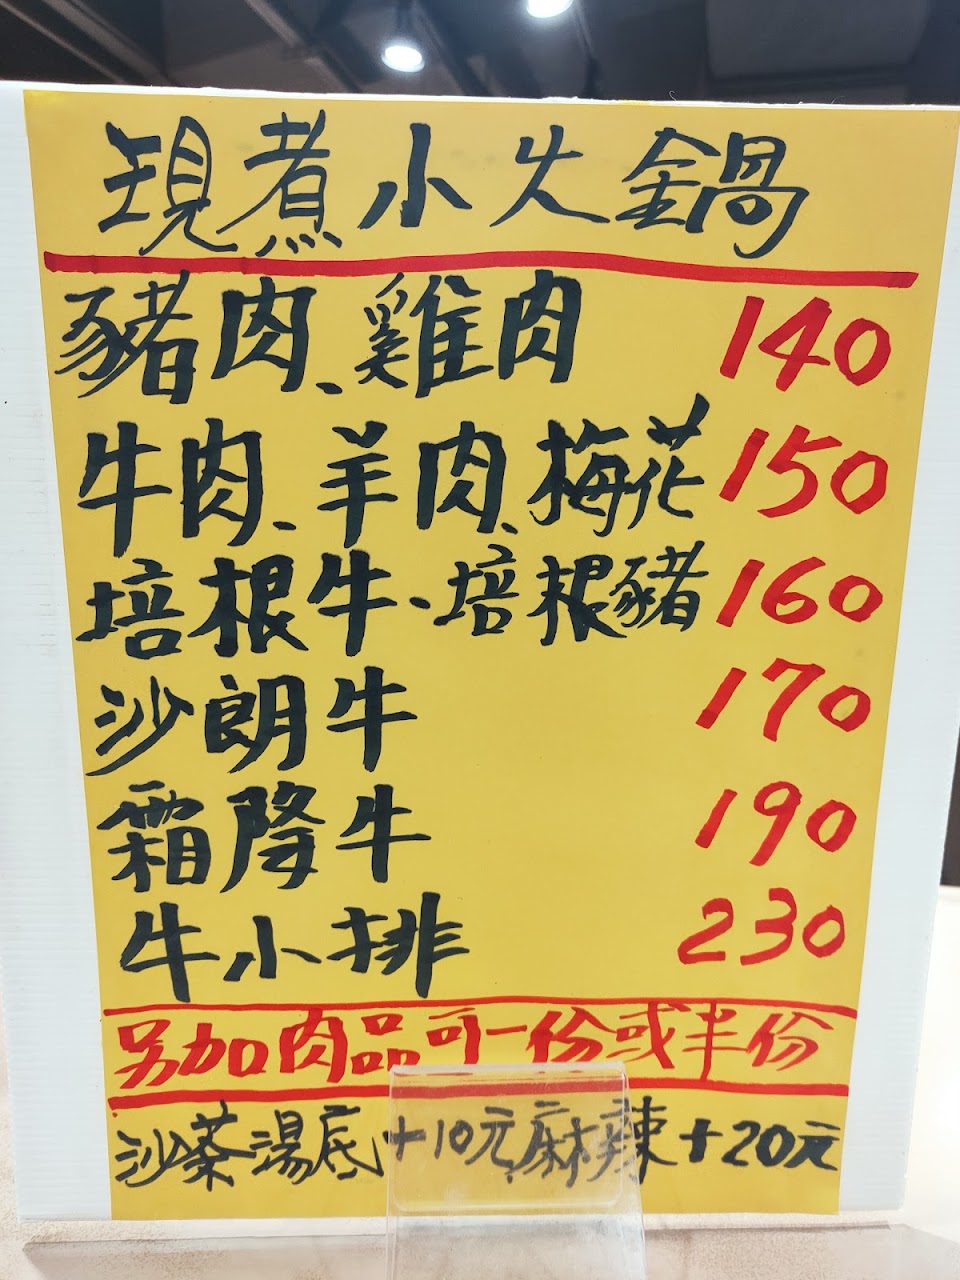 現煮小火鍋
豬肉、雞肉 140
牛肉、羊肉、梅花 150
培根牛、培根豬 160
沙朗牛 170
霜降牛 190
牛小排 230
另加肉品可一份或半份
沙茶湯底+10元麻辣+20元